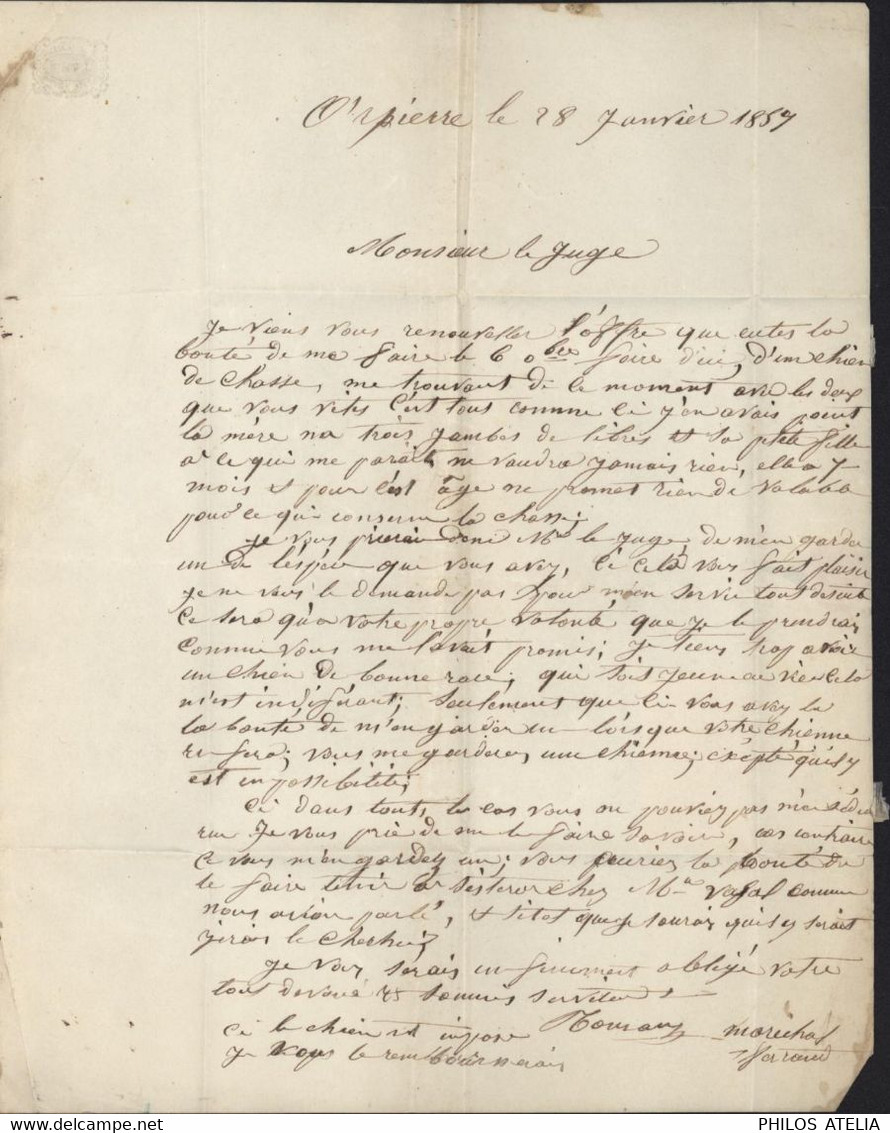 Orpierre le 28 Janvier 1857
Monsieur le Juge
Je viens vous renouveller l'offre que eutes la
bonté de me faire le 6 obre foire d'ici, d'un chien
de chasse, me trouvant de ce moment avec les deux
que vous vites c'est tout comme ci j'en avais point
la mère na trois jambes de libres et sa ptite fille
a ce qui me parait ne vaudra jamais rien, elle a 7
mois et pour c'est âge ne promet rien de valable
pour ce qui conserne la chasse;
Je vous prierai donc Mr le Juge, de m'en garder
un de l'espèce que vous avez, ci cela vous fait plaisir
je ne vous le demande pas pour m'en servir tout desuite
ce sera qu'a votre propre volonté que je le prendrais
comme vous me l'avait promis; je tiens trop avoir
un chien de bonne race; qui soit jeune ou vieu cela
n'est indiférant; seulement que ci vous avez la
la bonté de m'en garder un lorsque votre chienne
en fera; vous me garderez une chienne; éxépté qu'il y
est inpossibilité;
Ci dans touts les cas vous ne pouviez pas m'en
un je vous prie de me le faire savoir, cas contraire
ce vous m'en gardez un; vous auriez la bonté de
le faire tenir a Sisteron chez Mr comme
nous avions parlé, et sitot que je saurai qu'il y serait
j'irais le chercher;
Je vous serais infiniment obligé votre
tout devoué et soumis serviteur
ci le chien est impose marechal
Je vous le rembourserais ferrand
PHILOS ATELIA